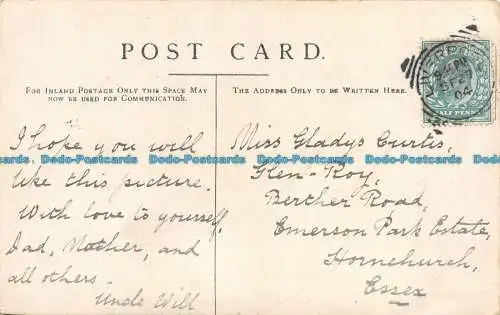 POST CARD.
FOR INLAND POSTAGE ONLY THIS SPACE MAY
NOW BE USED FOR COMMUNICATION.
THE ADDRESS ONLY TO BE WRITTEN HERE.
HALF PENNY
04
I hope you will
like this picture.
With love to yourself,
Dad, Mother, and
all others.
Uncle Will
Miss Gladys Curtis,
Glen-Roy,
Berther Road,
Emerson Park Estate,
Hornchurch,
Essex
Dodo-Postcards Dodo-Postcards Dodo-Postcards Dodo-Postcards Dodo-Postcards